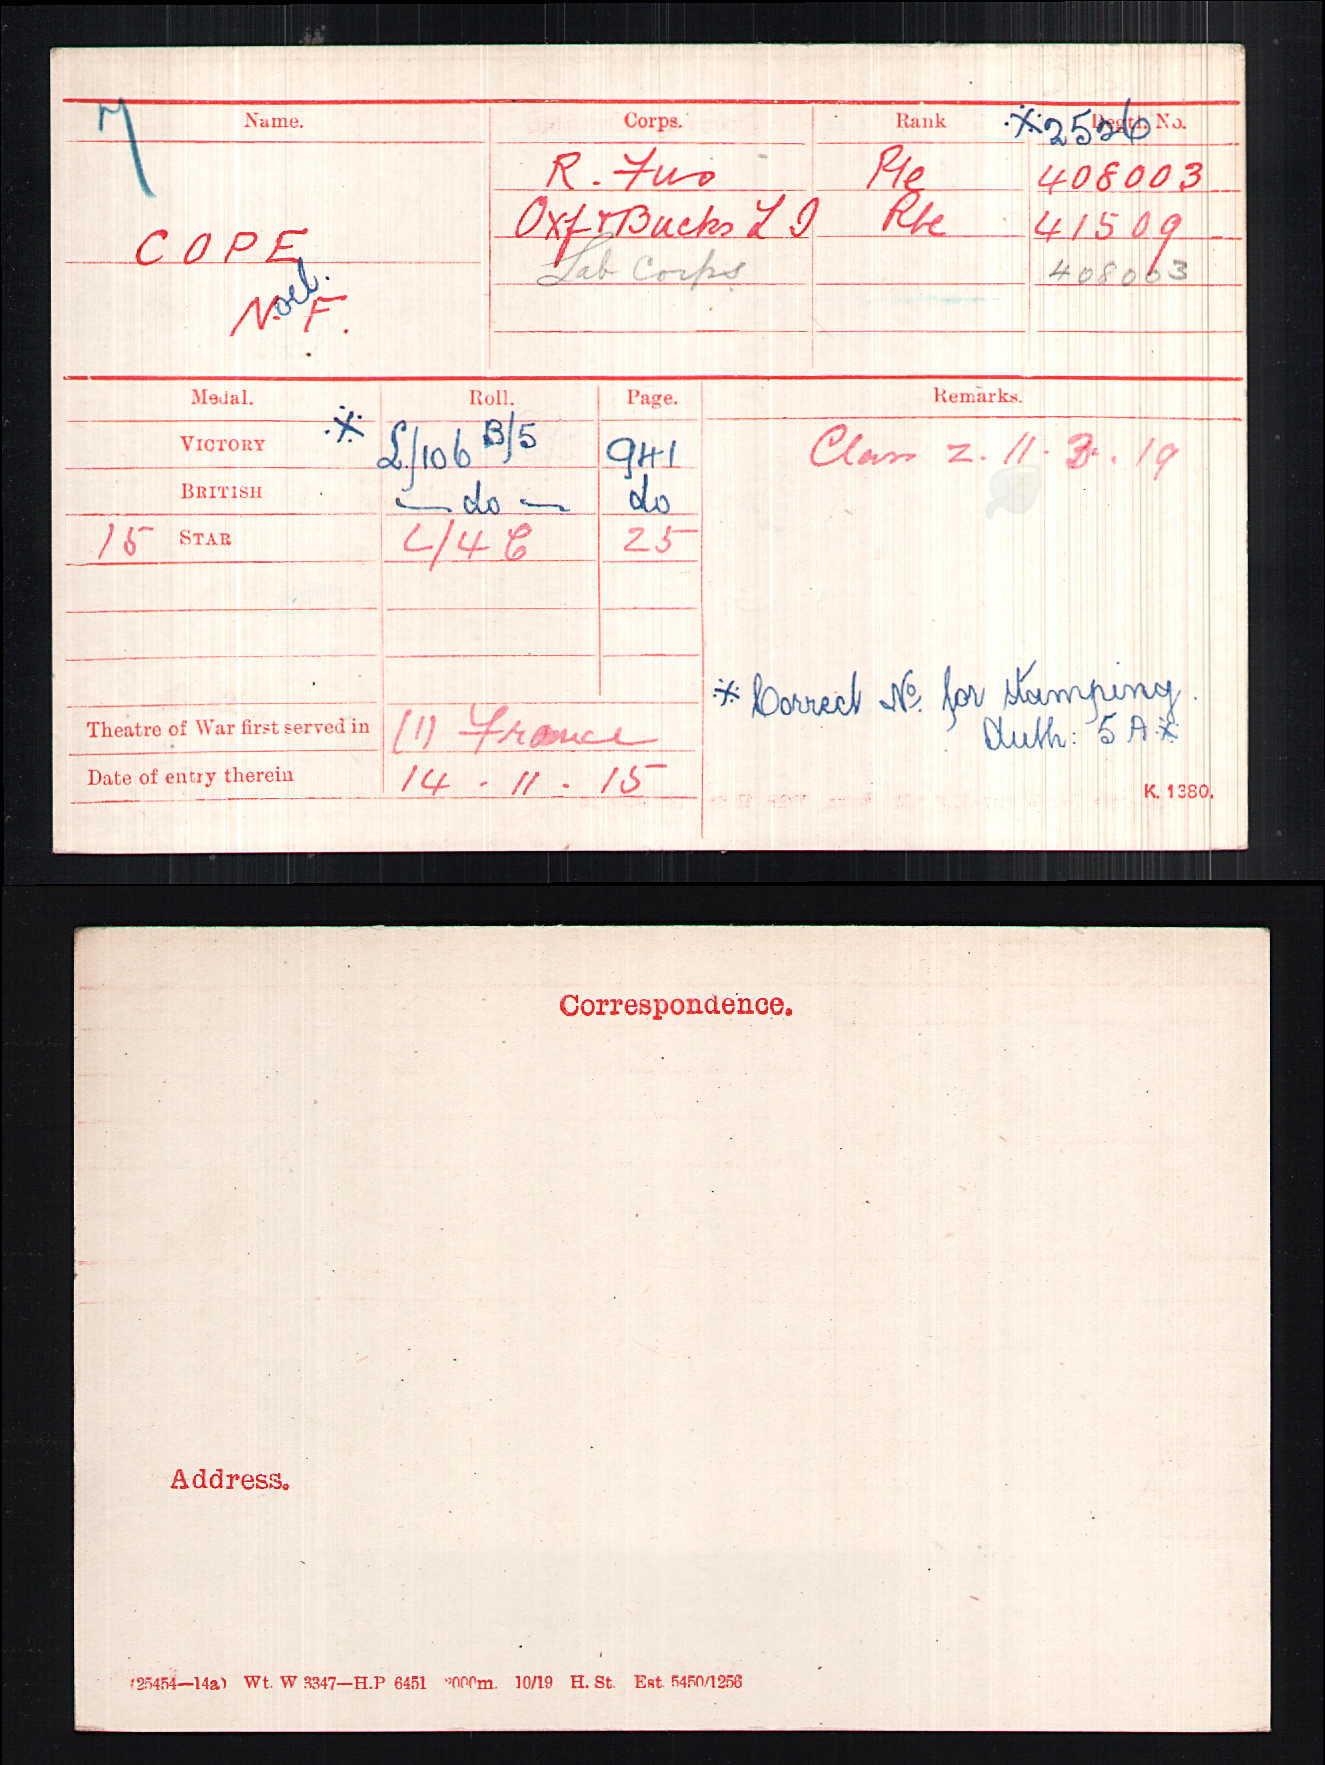 7
Name. Corps. Rank Regtl. No.
※ 2526
R. Fus Pte 408003
COPE Oxf & Bucks L I Pte 41509
Noel. F. Lab Corps 408003
Medal. Roll. Page. Remarks.
VICTORY ※ L/106 B/5 941 Class Z. 11. 3. 19
BRITISH — do — do
15 STAR L/4 C 25
※ Correct No. for stamping.
Auth: 5 A ※
Theatre of War first served in (1) France
Date of entry therein 14 . 11 . 15
K. 1380.
Correspondence.
Address.
(25454—14a) Wt. W 3347—H.P 6451 10/19 H. St. Est. 5450/1256